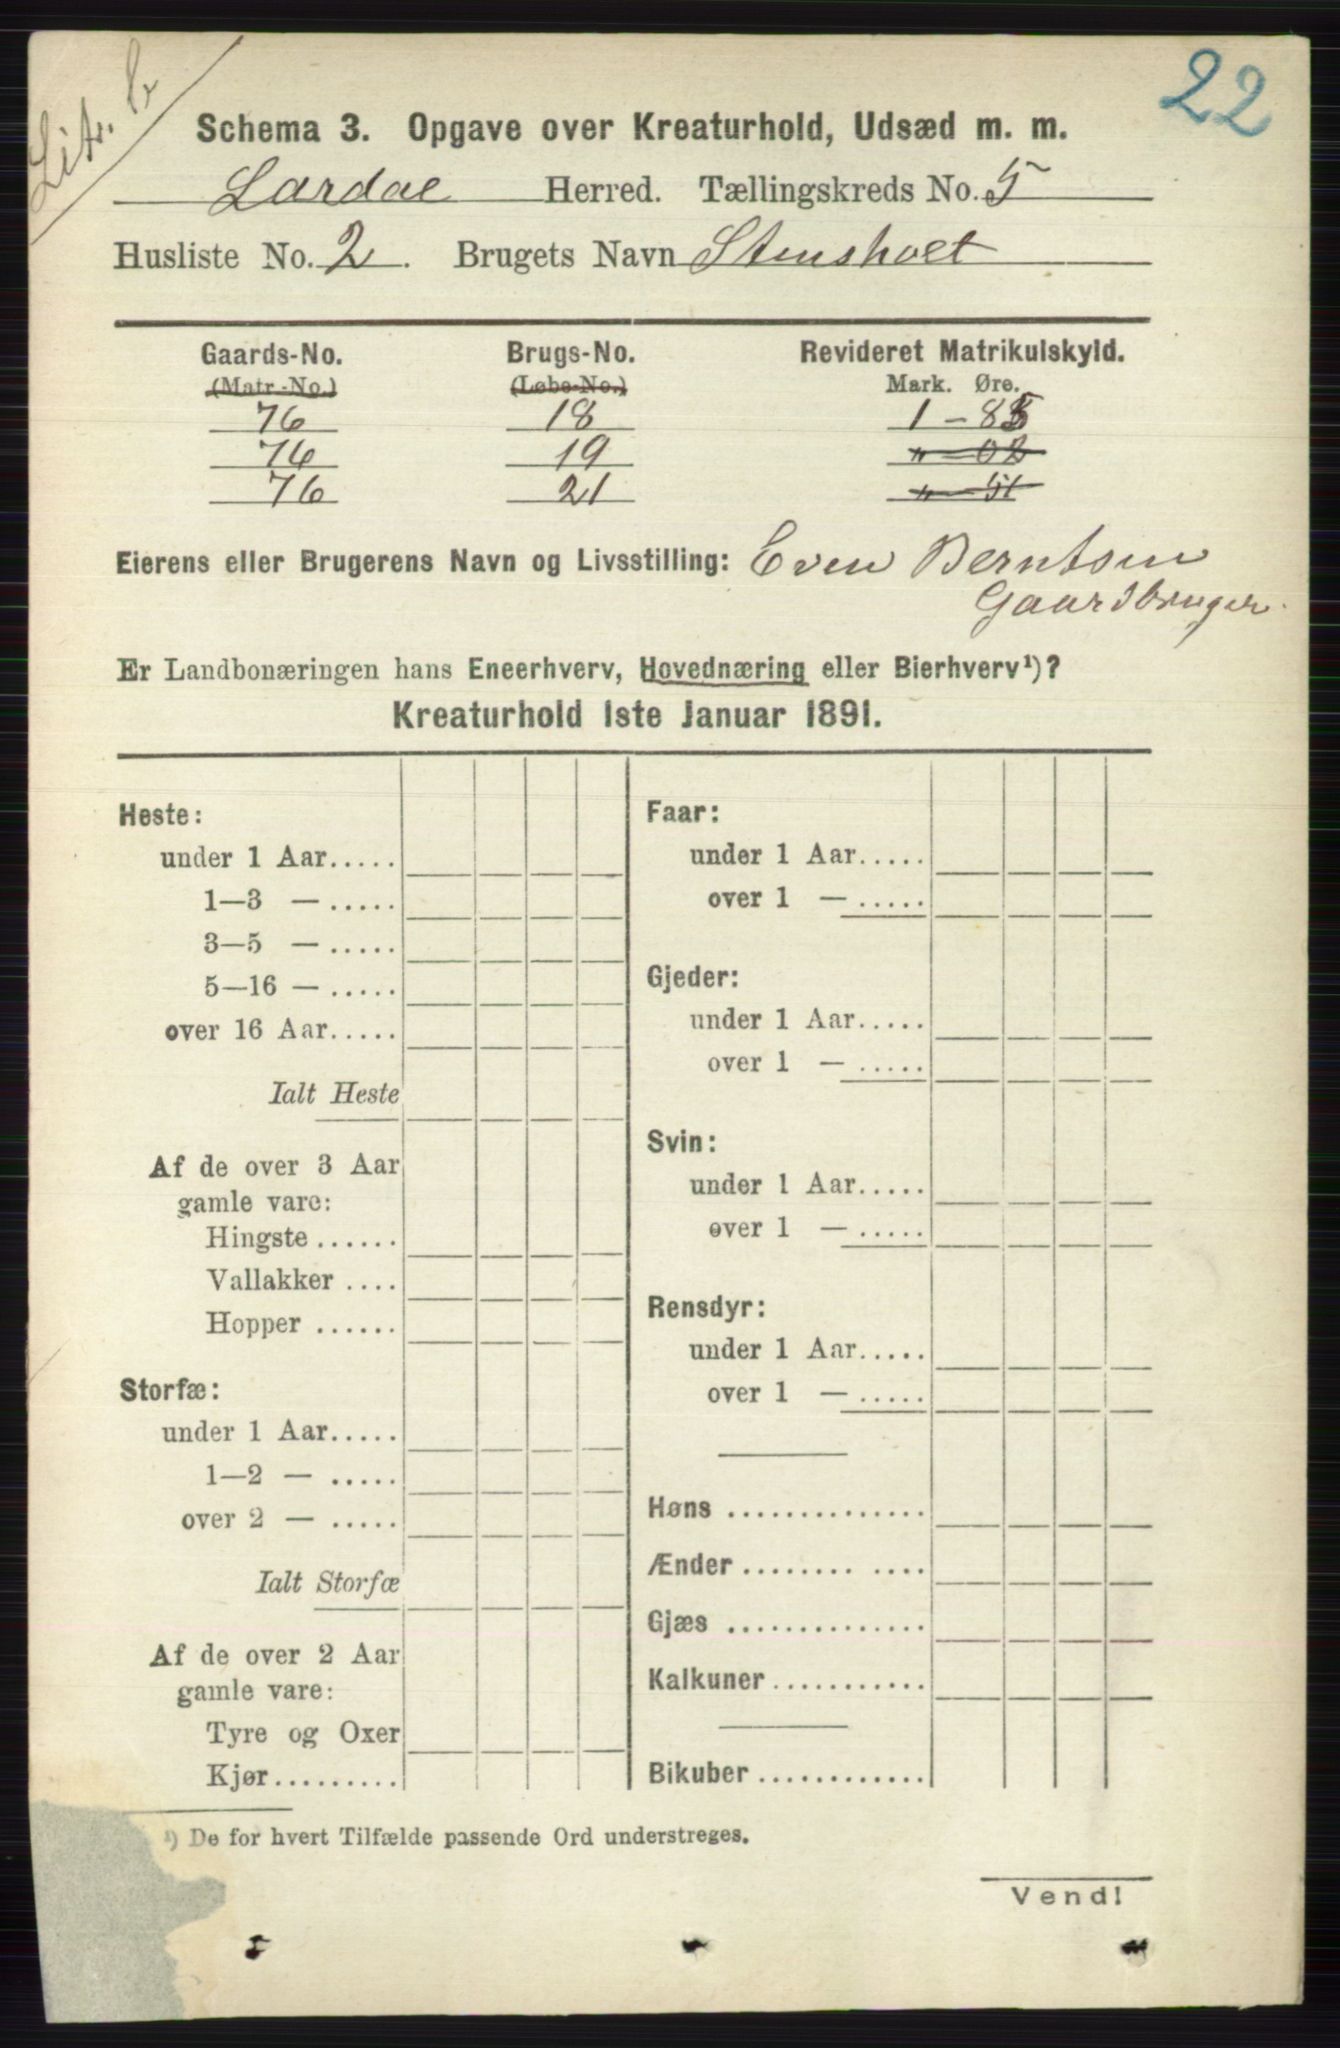 Litr. b
22
Schema 3. Opgave over Kreaturhold, Udsæd m. m.
Lardal Herred. Tællingskreds No. 5
Husliste No. 2. Brugets Navn Stensholt
Gaards-No. Brugs-No. Revideret Matrikulskyld.
(Matr.-No.) (Løbe-No.) Mark. Øre.
76 18 1 - 85
76 19 „ - 02
76 21 „ - 51
Eierens eller Brugerens Navn og Livsstilling: Even Berntsen
Gaardbruger.
Er Landbonæringen hans Eneerhverv, Hovednæring eller Bierhverv¹)?
Kreaturhold 1ste Januar 1891.
Heste:
under 1 Aar.....
1—3 — .....
3—5 — .....
5—16 — .....
over 16 Aar.....
Ialt Heste
Af de over 3 Aar
gamle vare:
Hingste ......
Vallakker ....
Hopper ......
Storfæ:
under 1 Aar.....
1—2 — .....
over 2 — .....
Ialt Storfæ
Af de over 2 Aar
gamle vare:
Tyre og Oxer
Kjør.........
Faar:
under 1 Aar.....
over 1 — .....
Gjeder:
under 1 Aar.....
over 1 — .....
Svin:
under 1 Aar.....
over 1 — .....
Rensdyr:
under 1 Aar.....
over 1 — .....
Høns ..............
Ænder ........ ....
Gjæs ..............
Kalkuner ...........
Bikuber ............
¹) De for hvert Tilfælde passende Ord understreges.
Vend!